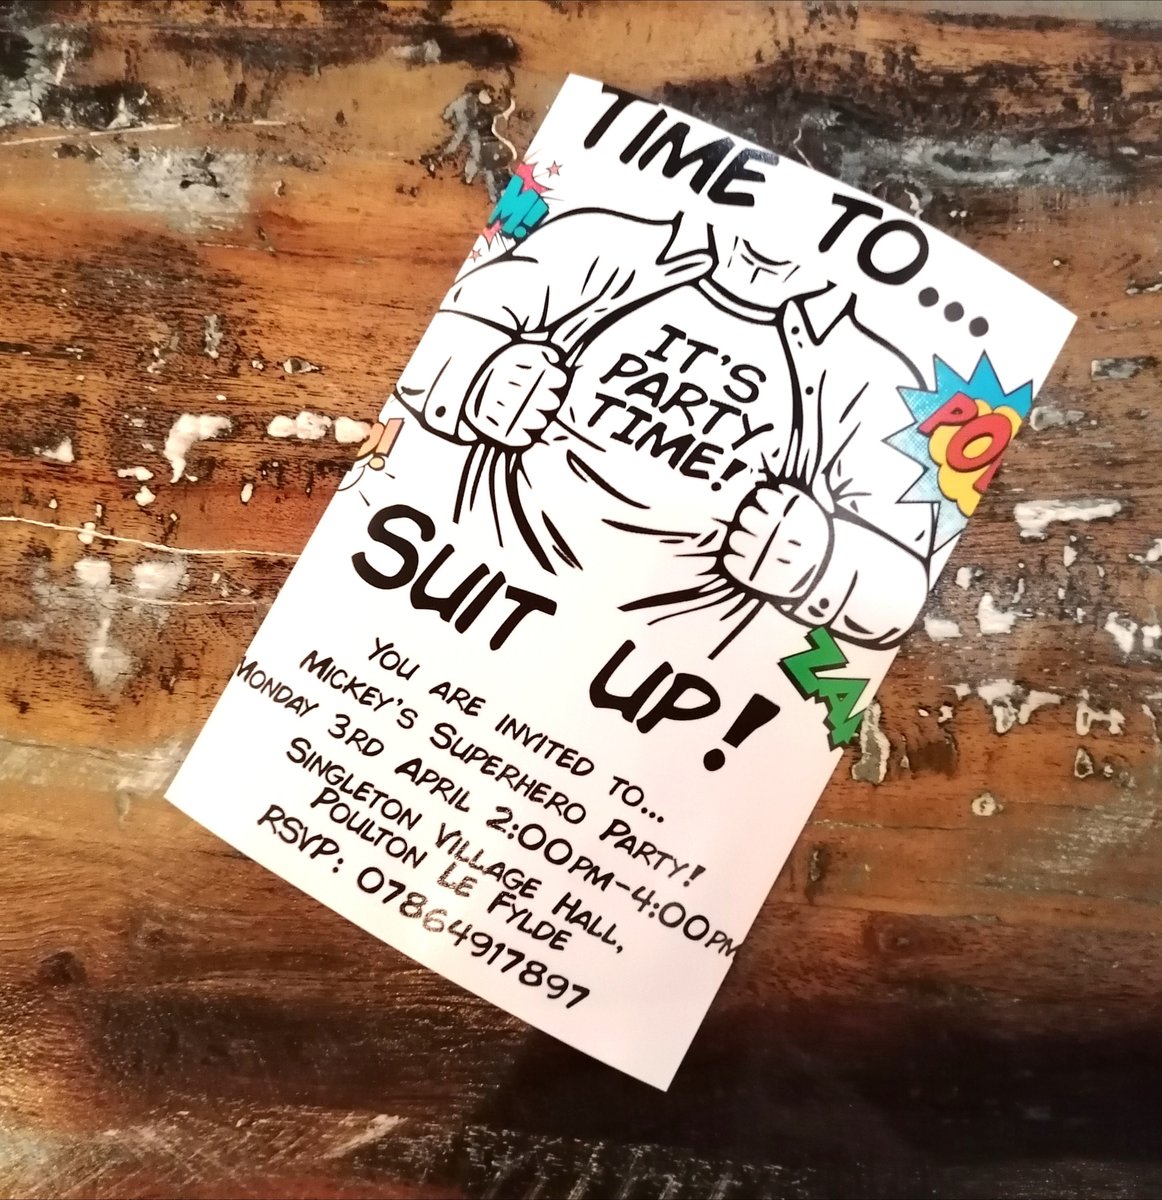 TIME TO...
M!
IT'S
PARTY
TIME!
SUIT UP!
YOU ARE INVITED TO...
MICKEY'S SUPERHERO PARTY!
MONDAY 3RD APRIL 2:00PM-4:00PM
SINGLETON VILLAGE HALL,
POULTON LE FYLDE
RSVP: 07864917897